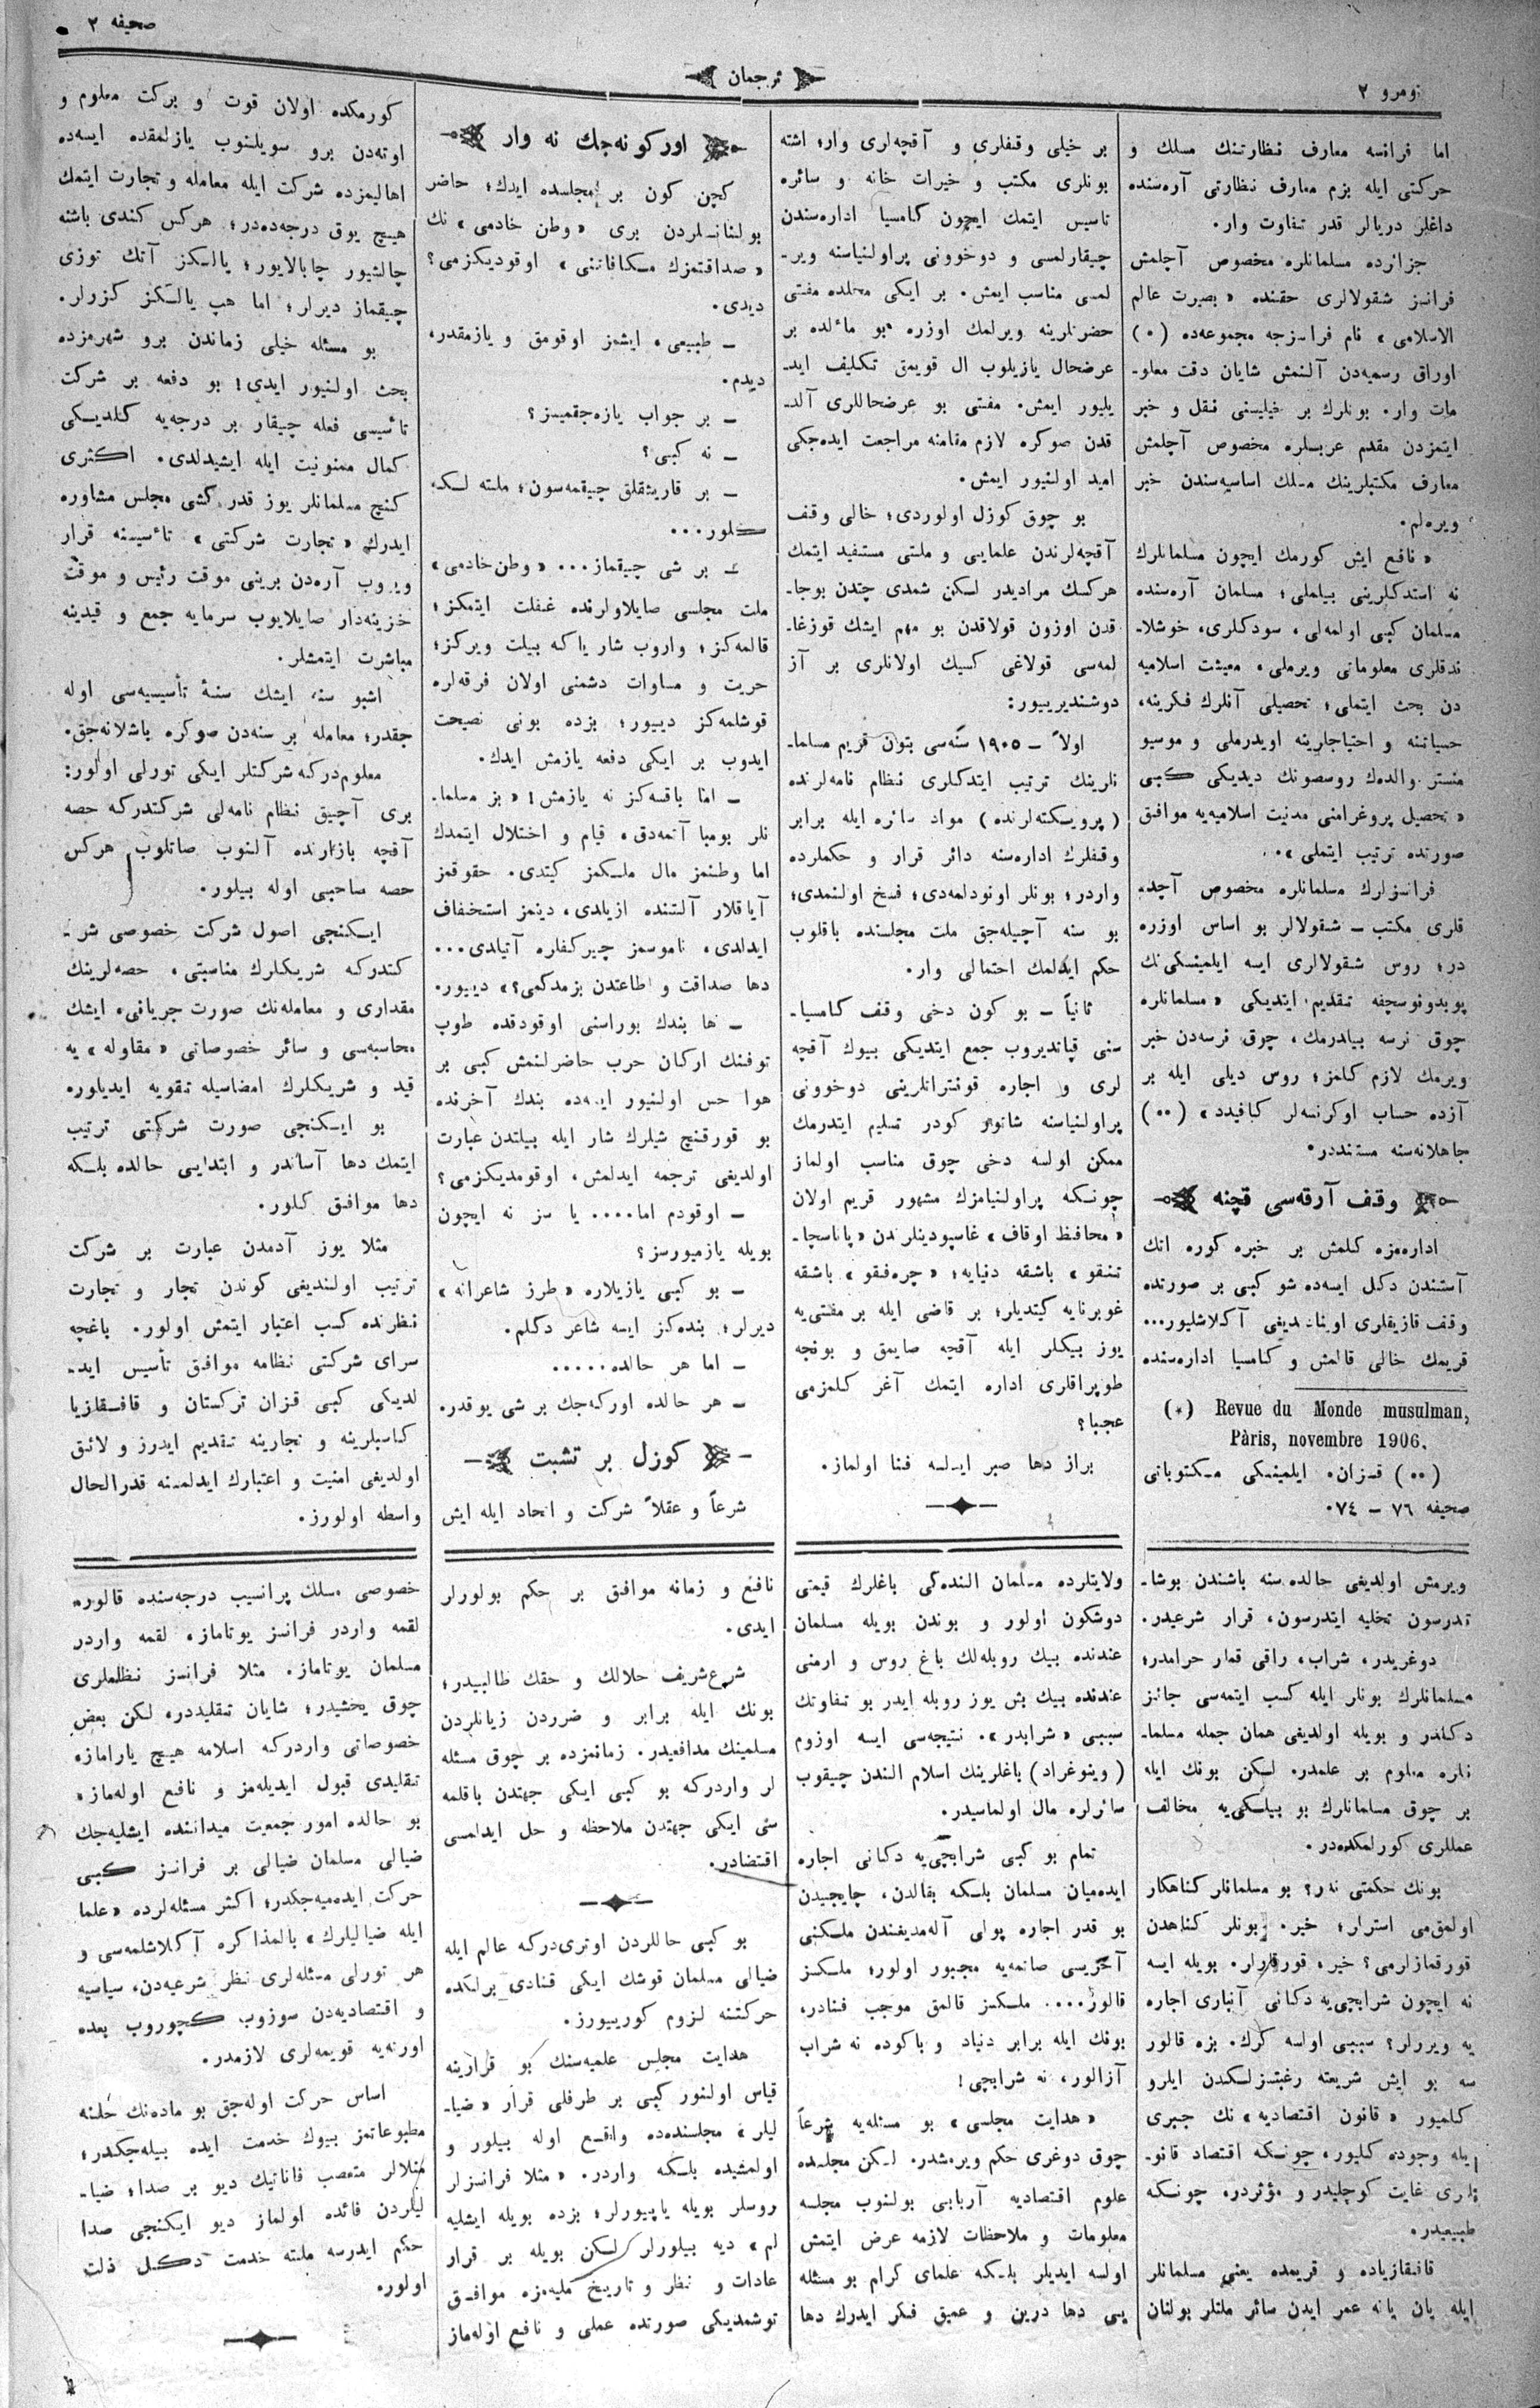 نومرو ٢
ترجمان
صحيفه ٢
اما فرانسه معارف نظارتنك مسلك و
حركتى ايله بزم معارف نظارتى آره‌سنده
داغلر دريالر قدر تفاوت وار.
جزائرده مسلمانلره مخصوص آچلمش
فرانسز شقولالرى حقنده « بصيرت عالم
الاسلامى » نام فرانسزجه مجموعه‌ده (٠)
اوراق رسميه‌دن آلنمش شايان دقت معلو-
مات وار. بونلرك بر خيليسنى نقل و خبر
ايتمزدن مقدم عربلره مخصوص آچلمش
معارف مكتبلرينك مسلك اساسيه‌سندن خبر
ويره‌لم.
« نافع ايش كورمك ايچون مسلمانلرك
نه استدكلرينى بيلملى؛ مسلمان آره‌سنده
مسلمان كبى اولمه‌لى، سودكلرى، خوشلا-
ندقلرى معلوماتى ويرملى، معيشت اسلاميه
دن بحث ايتملى؛ تحصيلى آنلرك فكرينه،
حسياتنه و احتياجلرينه اويدرملى و موسيو
منستر والده‌ك روسصونك ديديكى كبى
« تحصيل پروغرامنى مدنيت اسلاميه‌يه موافق
صورتده ترتيب ايتملى ».
فرانسزلرك مسلمانلره مخصوص آچد-
قلرى مكتب – شقولالر بو اساس اوزره
در؛ روس شقولالرى ايسه ايلمينسكى‌نك
پوبدونوسچفه تقديم ايتديكى « مسلمانلره
چوق نرسه بيلدرمك، چوق نرسه‌دن خبر
ويرمك لازم كلمز؛ روس ديلى ايله بر
آزده حساب اوكرنسه‌لر كافيدد » (٠٠)
جاهلانه‌سنه مستنددر.
وقف آرقه‌سى قچنه
اداره‌مزه كلمش بر خبره كوره انك
آستندن دكل ايسه‌ده شو كبى بر صورتده
وقف قازيقلرى اوينانديغى آكلاشليور...
قريمك خالى قالمش و كامسيا اداره‌سنده
(*) Revue du Monde musulman,
Pàris, novembre 1906.
(٠٠) قزان. ايلمينسكى مكتوباتى
صحيفه ٧٦ – ٧٤.
بر خيلى وقفلرى و آقچه‌لرى وار؛ اشته
بونلرى مكتب و خيرات خانه و سائره
تاسيس ايتمك ايچون كامسيا اداره‌سندن
چيقارلمسى و دوخوونى پراولنياسنه وير-
لمسى مناسب ايمش. بر ايكى محلده مفتى
حضرتلرينه ويرلمك اوزره بو مائلده بر
عرضحال يازيلوب ال قويمق تكليف ايد-
يليور ايمش. مفتى بو عرضحاللرى آلد-
قدن صوكره لازم مقامنه مراجعت ايده‌جكى
اميد اولنيور ايمش.
بو چوق كوزل اولوردى؛ خالى وقف
آقچه‌لرندن علمايى و ملتى مستفيد ايتمك
هركسك مراديدر لسكن شمدى چتدن بوجا-
قدن اوزون قولاقدن بو مهم ايشك قوزغا-
لمه‌سى قولاغى كسيك اولانلرى بر آز
دوشنديرييور:
اولاً – ١٩٠٥ سنه‌سى بتون قريم مسلما-
نلرينك ترتيب ايتدكلرى نظام نامه‌لرنده
(پرويسكته‌لرنده) مواد سائره ايله برابر
وقفلرك اداره‌سنه دائر قرار و حكملرده
واردر؛ بونلر اونودلمه‌دى؛ فسخ اولنمدى؛
بو سنه آچيله‌جق ملت مجلسنده باقلوب
حكم ايدلمك احتمالى وار.
ثانياً – بو كون دخى وقف كامسيا-
سنى قپانديروب جمع ايتديكى بيوك آقچه
لرى و اجاره قونترانلرينى دوخوونى
پراولنياسنه شانور كودر تسليم ايتدرمك
ممكن اولسه دخى چوق مناسب اولماز
چونكه پراولنيامزك مشهور قريم اولان
« محافظ اوقاف » غاسپودينلرندن « پاناسچا-
تنقو » باشقه دنيايه؛ « چره‌فقو » باشقه
غوبرنايه كيتديلر؛ بر قاضى ايله بر مفتى‌يه
يوز بيكلر ايله آقچه صايمق و بونجه
طوپراقلرى اداره ايتمك آغر كلمزمى
عجبا؟
براز دها صبر ايدلسه فنا اولماز.
اوركونه‌جك نه وار
كچن كون بر مجلسده ايدك؛ حاضر
بولنانلردن برى « وطن خادمى » نك
« صداقتمزك مكافاتنى » اوقوديكزمى؟
ديدى.
– طبيعى، ايشمز اوقومق و يازمقدر،
ديدم.
– بر جواب يازه‌جقميسز؟
– نه كبى؟
– بر قاريشقلق چيقمه‌سون؛ ملته لكه
كلور...
– بر شى چيقماز... « وطن خادمى »
ملت مجلسى صايلاولرنده غفلت ايتمكز؛
قالمه‌كز؛ واروب شار ياكه بيلت ويركز؛
حريت و مساوات دشمنى اولان فرقه‌لره
قوشلمه‌كز دييور؛ بزده بونى نصيحت
ايدوب بر ايكى دفعه يازمش ايدك.
– اما باقسه‌كز نه يازمش! « بز مسلما-
نلر بومبا آتمه‌دق، قيام و اختلال ايتمدك
اما وطنمز مال ملكمز كيتدى. حقوقمز
آياقلار آلتنده ازيلدى، دينمز استخفاف
ايدلدى، ناموسمز چيركفلره آتيلدى...
دها صداقت و اطاعتدن بزمدكمى؟ » دييور.
– ها بندك بوراسنى اوقودقده طوب
توفنك اركان حرب حاضرلنمش كبى بر
هوا حس اولنيور ايسه‌ده بندك آخرنده
بو قورقنچ شيلرك شار ايله بيلتدن عبارت
اولديغى ترجمه ايدلمش، اوقومديكزمى؟
– اوقودم اما.... يا سز نه ايچون
بويله يازميورسز؟
– بو كبى يازيلاره « طرز شاعرانه »
ديرلر؛ بنده‌كز ايسه شاعر دكلم.
– اما هر حالده.....
– هر حالده اوركه‌جك بر شى يوقدر.
كوزل بر تشبث
شرعاً و عقلاً شركت و اتحاد ايله ايش
كورمكده اولان قوت و بركت معلوم و
اوته‌دن برو سويلنوب يازلمقده ايسه‌ده
اهاليمزده شركت ايله معامله و تجارت ايتمك
هيچ يوق درجه‌ده‌در؛ هركس كندى باشنه
چالشيور چابالايور؛ يالكز آتك توزى
چيقماز ديرلر؛ اما هپ يالكز كزرلر.
بو مسئله خيلى زماندن برو شهرمزده
بحث اولنيور ايدى؛ بو دفعه بر شركت
تاسيسى فعله چيقار بر درجه‌يه كلديكى
كمال ممنونيت ايله ايشيدلدى. اكثرى
كنج مسلمانلر يوز قدر كشى مجلس مشاوره
ايدرك « تجارت شركتى » تأسيسنه قرار
ويروب آره‌دن برينى موقت رئيس و موقت
خزينه‌دار صايلايوب سرمايه جمع و قيدينه
مباشرت ايتمشلر.
اشبو سنه ايشك سنۀ تأسيسيه‌سى اوله
جقدر؛ معامله بر سنه‌دن صوكره باشلانه‌جق.
معلوم‌دركه شركتلر ايكى تورلى اولور:
برى آچيق نظام نامه‌لى شركتدركه حصه
آقچه بازارنده آلنوب صاتلوب هركس
حصه صاحبى اوله بيلور.
ايكنجى اصول شركت خصوصى شر-
كتدركه شريكلرك مناسبتى، حصه‌لرينك
مقدارى و معامله‌نك صورت جريانى، ايشك
محاسبه‌سى و سائر خصوصاتى « مقاوله » يه
قيد و شريكلرك امضاسيله تقويه ايديلور.
بو ايكنجى صورت شركتى ترتيب
ايتمك دها آساندر و ابتدايى حالده بلكه
دها موافق كلور.
مثلا يوز آدمدن عبارت بر شركت
ترتيب اولنديغى كوندن تجار و تجارت
نظرنده كسب اعتبار ايتمش اولور. باغچه
سراى شركتى نظامه موافق تأسيس ايد-
لديكى كبى قزان تركستان و قافقازيا
كاسبلرينه و تجارينه تقديم ايدرز و لائق
اولديغى امنيت و اعتبارك ايدلمسنه قدرالحال
واسطه اولورز.
ويرمش اولديغى حالده سنه باشندن بوشا-
تدرسون تخليه ايتدرسون، قرار شرعيدر.
دوغريدر، شراب، راقى قمار حرامدر؛
مسلمانلرك بونلر ايله كسب ايتمه‌سى جائز
دكلدر و بويله اولديغى همان جمله مسلما-
نلره معلوم بر علمدر. لسكن بونك ايله
بر چوق مسلمانلرك بو بيلكى‌يه مخالف
عمللرى كورلمكده‌در.
بونك حكمتى نه‌در؟ بو مسلمانلر كناهكار
اولمق‌مى استرلر؛ خير. بونلر كناهدن
قورقمازلرمى؟ خير، قورقارلر. بويله ايسه
نه ايچون شرابجى‌يه دكانى آنبارى اجاره
يه ويررلر؟ سببى اولسه كرك. بزه قالور
سه بو ايش شريعته رغبتسزلكدن ايلرو
كلميور « قانون اقتصاديه » نك جبرى
ايله وجوده كليور، چونكه اقتصاد قانو-
نلرى غايت كوچليدر و مؤثردر. چونكه
طبيعيدر.
قافقازياده و قريمده يعنى مسلمانلر
ايله يان يانه عمر ايدن سائر ملتلر بولنان
ولايتلرده مسلمان النده‌كى باغلرك قيمتى
دوشكون اولور و بوندن بويله مسلمان
عندنده بيك روبله‌لك باغ روس و ارمنى
عندنده بيك بش يوز روبله ايدر بو تفاوتك
سببى « شرابدر ». نتيجه‌سى ايسه اوزوم
(وينوغراد) باغلرينك اسلام الندن چيقوب
سائرلره مال اولماسيدر.
تمام بو كبى شرابجى‌يه دكانى اجاره
ايده‌ميان مسلمان بلكه بقالدن، چايجيدن
بو قدر اجاره پولى آله‌مديغندن ملكنى
آخريسى صاتمه‌يه مجبور اولور؛ ملكسز
قالور.... ملكسز قالمق موجب فنادر،
بونك ايله برابر دنياد و باكوده نه شراب
آزالور، نه شرابجى!
« هدايت مجلسى » بو مسئله‌يه شرعاً
چوق دوغرى حكم ويرمشدر. لسكن مجلسده
علوم اقتصاديه آربابى بولنوب مجلسه
معلومات و ملاحظات لازمه عرض ايتمش
اولسه ايديلر بلكه علماى كرام بو مسئله
يى دها درين و عميق فكر ايدرك دها
نافع و زمانه موافق بر حكم بولورلر
ايدى.
شرع‌شريف حلالك و حقك طالبيدر؛
بونك ايله برابر و ضرردن زيانلردن
مسلمينك مدافعيدر. زمانمزده بر چوق مسئله
لر واردركه بو كبى ايكى جهتدن باقلمه
سى ايكى جهتدن ملاحظه و حل ايدلمسى
اقتضادر.
بو كبى حاللردن اوترى‌دركه عالم ايله
ضيالى مسلمان قوشك ايكى قنادى برلكده
حركتنه لزوم كورييورز.
هدايت مجلس علميه‌سنك بو قرارينه
قياس اولنور كبى بر طرفلى قرار « ضيا-
ليلر » مجلسنده‌ده واقع اوله بيلور و
اولمشيده بلكه واردر. « مثلا فرانسزلر
روسلر بويله ياپيورلر؛ بزده بويله ايشليه
لم » ديه بيلورلر لسكن بويله بر قرار
عادات و نظر و تاريخ مليه‌مزه موافق
توشمديكى صورتده عملى و نافع اوله‌ماز
خصوصى مسلك پرانسيب درجه‌سنده قالور.
لقمه واردر فرانسز يوتاماز، لقمه واردر
مسلمان يوتاماز. مثلا فرانسز نظاملرى
چوق يخشيدر؛ شايان تقليددر، لكن بعض
خصوصاتى واردركه اسلامه هيچ ياراماز،
تقليدى قبول ايديله‌مز و نافع اوله‌ماز.
بو حالده امور جمعيت ميداننده ايشليه‌جك
ضيالى مسلمان ضيالى بر فرانسز كبى
حركت ايده‌ميه‌جكدر؛ اكثر مسئله‌لرده « علما
ايله ضياليلرك » بالمذاكره آكلاشلمه‌سى و
هر تورلى مسئله‌لرى نظر شرعيه‌دن، سياسيه
و اقتصاديه‌دن سوزوب كچوروب بعده
اورته‌يه قويمه‌لرى لازمدر.
اساس حركت اوله‌جق بو ماده‌نك حلنه
مطبوعاتمز بيوك خدمت ايده بيله‌جكدر؛
منلالر متعصب فاناتيك ديو بر صدا؛ ضيا-
ليلردن فائده اولماز ديو ايكنجى صدا
حكم ايدرسه ملته خدمت دكل ذلت
اولور.